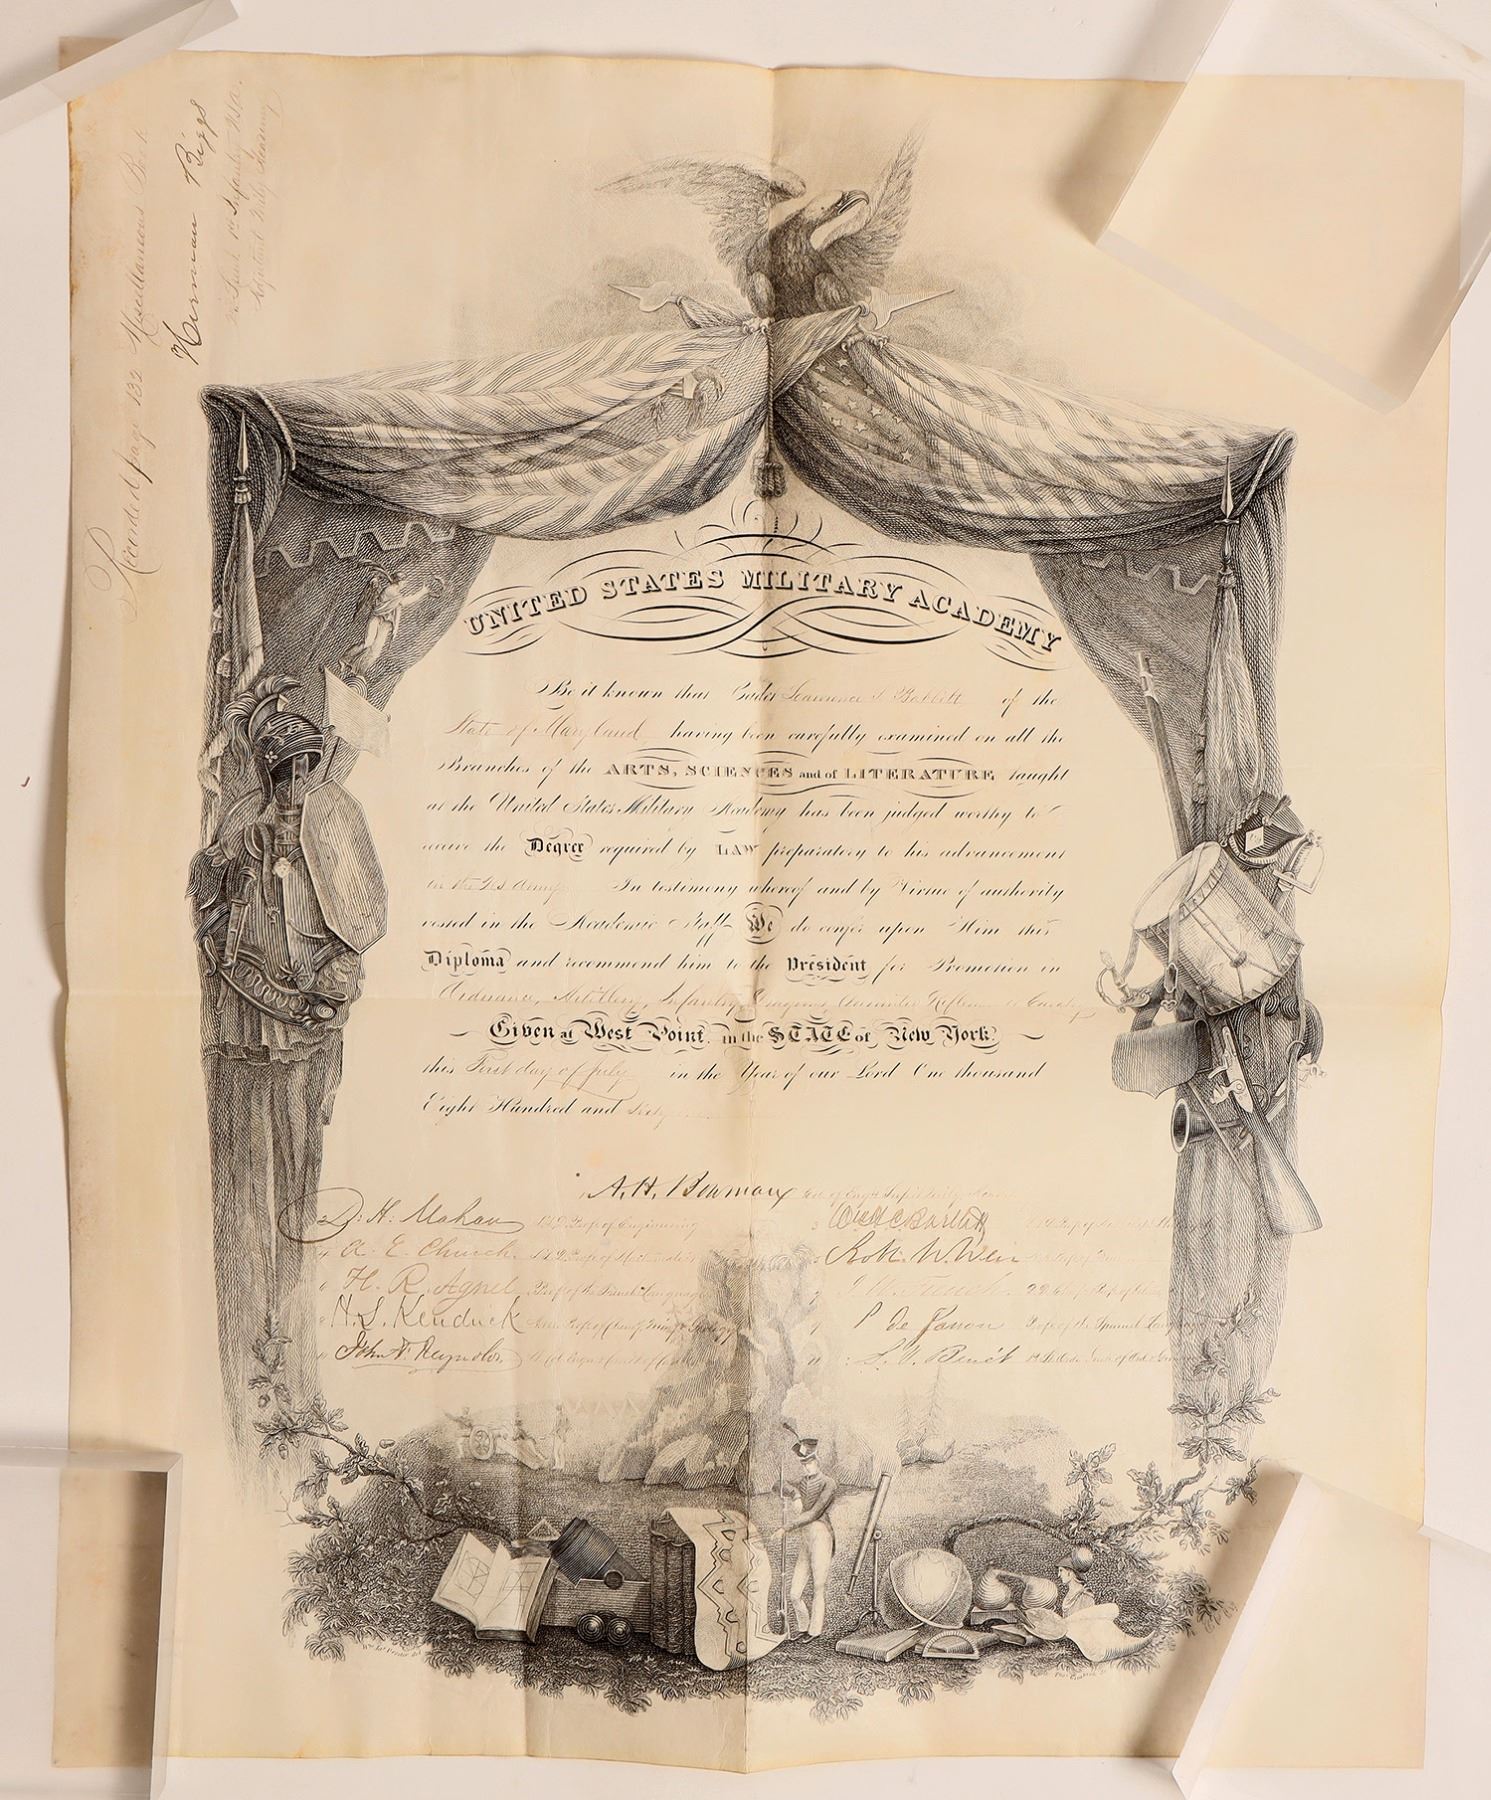 Recorded page 132 Miscellaneous Book
Herman Biggs
1st Infantry USA.
UNITED STATES MILITARY ACADEMY
Be it known that Cadet Lawrence S Babbitt of the
State of Maryland having been carefully examined on all the
Branches of the ARTS, SCIENCES and of LITERATURE taught
at the United States Military Academy has been judged worthy to
receive the Degree required by LAW preparatory to his advancement
in the US Army. In testimony whereof and by Virtue of authority
vested in the Academic Staff We do confer upon Him this
Diploma and recommend him to the President for Promotion in
Ordnance, Artillery, Infantry, Dragoons, Mounted Riflemen or Cavalry
Given at West Point, in the STATE of New York.
this First day of July in the Year of our Lord One thousand
Eight Hundred and
A. H. Bowman
2 D. H. Mahan Prof of Engineering
3 W. H. C. Bartlett
4 A. E. Church
5 Robt. W. Weir
6 H. R. Agnel Prof of the French Language
7 J. W. French
8 H. L. Kendrick
9 P. de Janon Prof of the Spanish Language
John F. Reynolds
11 S. V. Benét